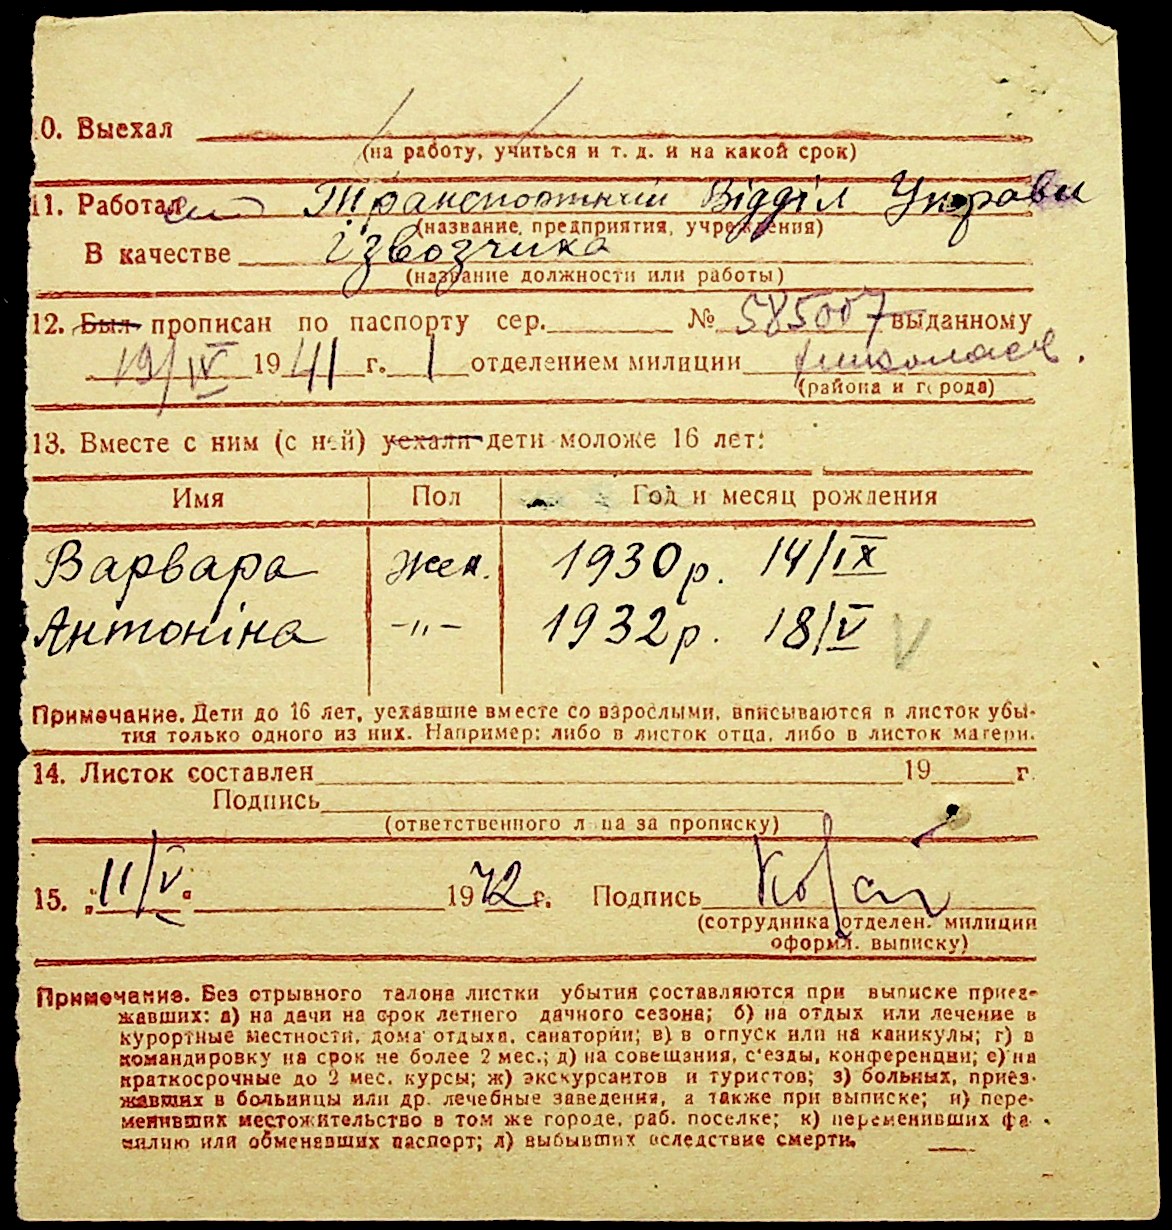 10. Выехал
(на работу, учиться и т. д. и на какой срок)
11. Работал Транспортний Відділ Управи
(название, предприятия, учреждения)
В качестве ізвозчика
(название должности или работы)
12. Был прописан по паспорту сер. № 585007 выданному
19/IV 1941 г. 1 отделением милиции Николаев.
(района и города)
13. Вместе с ним (с ней) уехали дети моложе 16 лет:
Имя Пол Год и месяц рождения
Варвара жен. 1930 р. 14/IX
Антоніна -"- 1932 р. 18/V V
Примечание. Дети до 16 лет, уехавшие вместе со взрослыми, вписываются в листок убы-
тия только одного из них. Например: либо в листок отца, либо в листок матери.
14. Листок составлен 19 г.
Подпись
(ответственного лица за прописку)
15. „11/V“ 1942 г. Подпись
(сотрудника отделен. милиции
оформл. выписку)
Примечание. Без отрывного талона листки убытия составляются при выписке приез-
жавших: а) на дачи на срок летнего дачного сезона; б) на отдых или лечение в
курортные местности, дома отдыха, санатории; в) в отпуск или на каникулы; г) в
командировку на срок не более 2 мес.; д) на совещания, с'езды, конференции; е) на
краткосрочные до 2 мес. курсы; ж) экскурсантов и туристов; з) больных, приез-
жавших в больницы или др. лечебные заведения, а также при выписке; и) пере-
менивших местожительство в том же городе, раб. поселке; к) переменивших фа-
милию или обменявших паспорт; л) выбывших вследствие смерти.